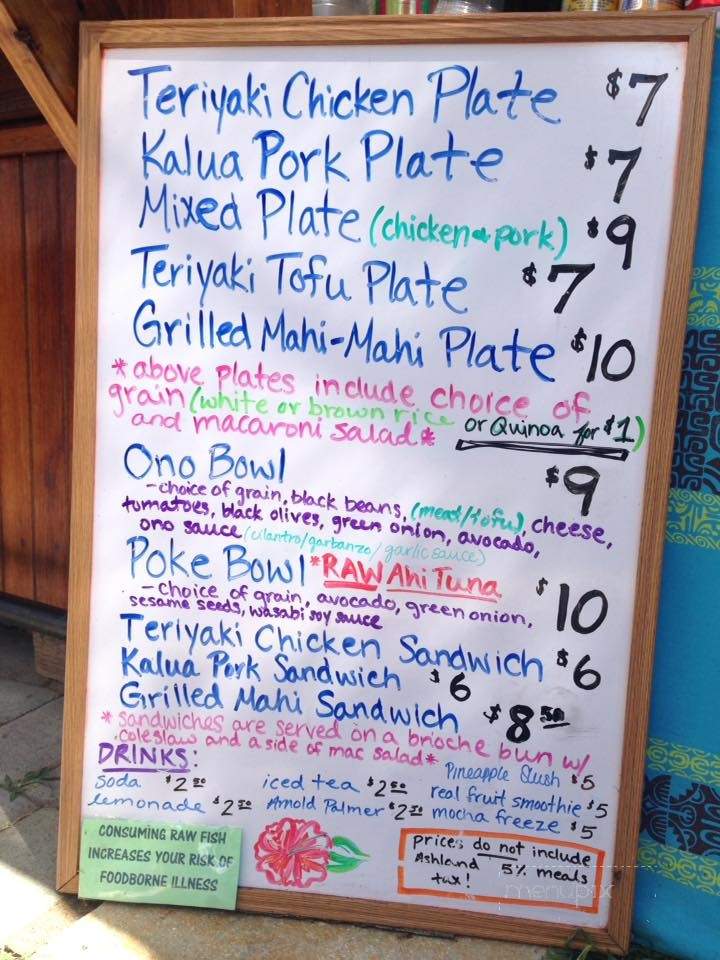 Teriyaki Chicken Plate $7
Kalua Pork Plate $7
Mixed Plate (chicken & pork) $9
Teriyaki Tofu Plate $7
Grilled Mahi-Mahi Plate $10
*above plates include choice of
grain (white or brown rice or Quinoa for $1)
and macaroni salad*
Ono Bowl $9
-choice of grain, black beans, (meat/tofu), cheese,
tomatoes, black olives, green onion, avocado,
ono sauce (cilantro/garbanzo/garlic sauce)
Poke Bowl *RAW Ahi Tuna $10
-choice of grain, avocado, green onion,
sesame seeds, wasabi soy sauce
Teriyaki Chicken Sandwich $6
Kalua Pork Sandwich $6
Grilled Mahi Sandwich $8 50
*sandwiches are served on a brioche bun w/
coleslaw and a side of mac salad*
DRINKS:
Soda $2 50
lemonade $2 50
iced tea $2 50
Arnold Palmer $2 50
Pineapple Slush $5
real fruit smoothie $5
mocha freeze $5
CONSUMING RAW FISH
INCREASES YOUR RISK OF
FOODBORNE ILLNESS
prices do not include
Ashland 5% meals
tax!
menupix